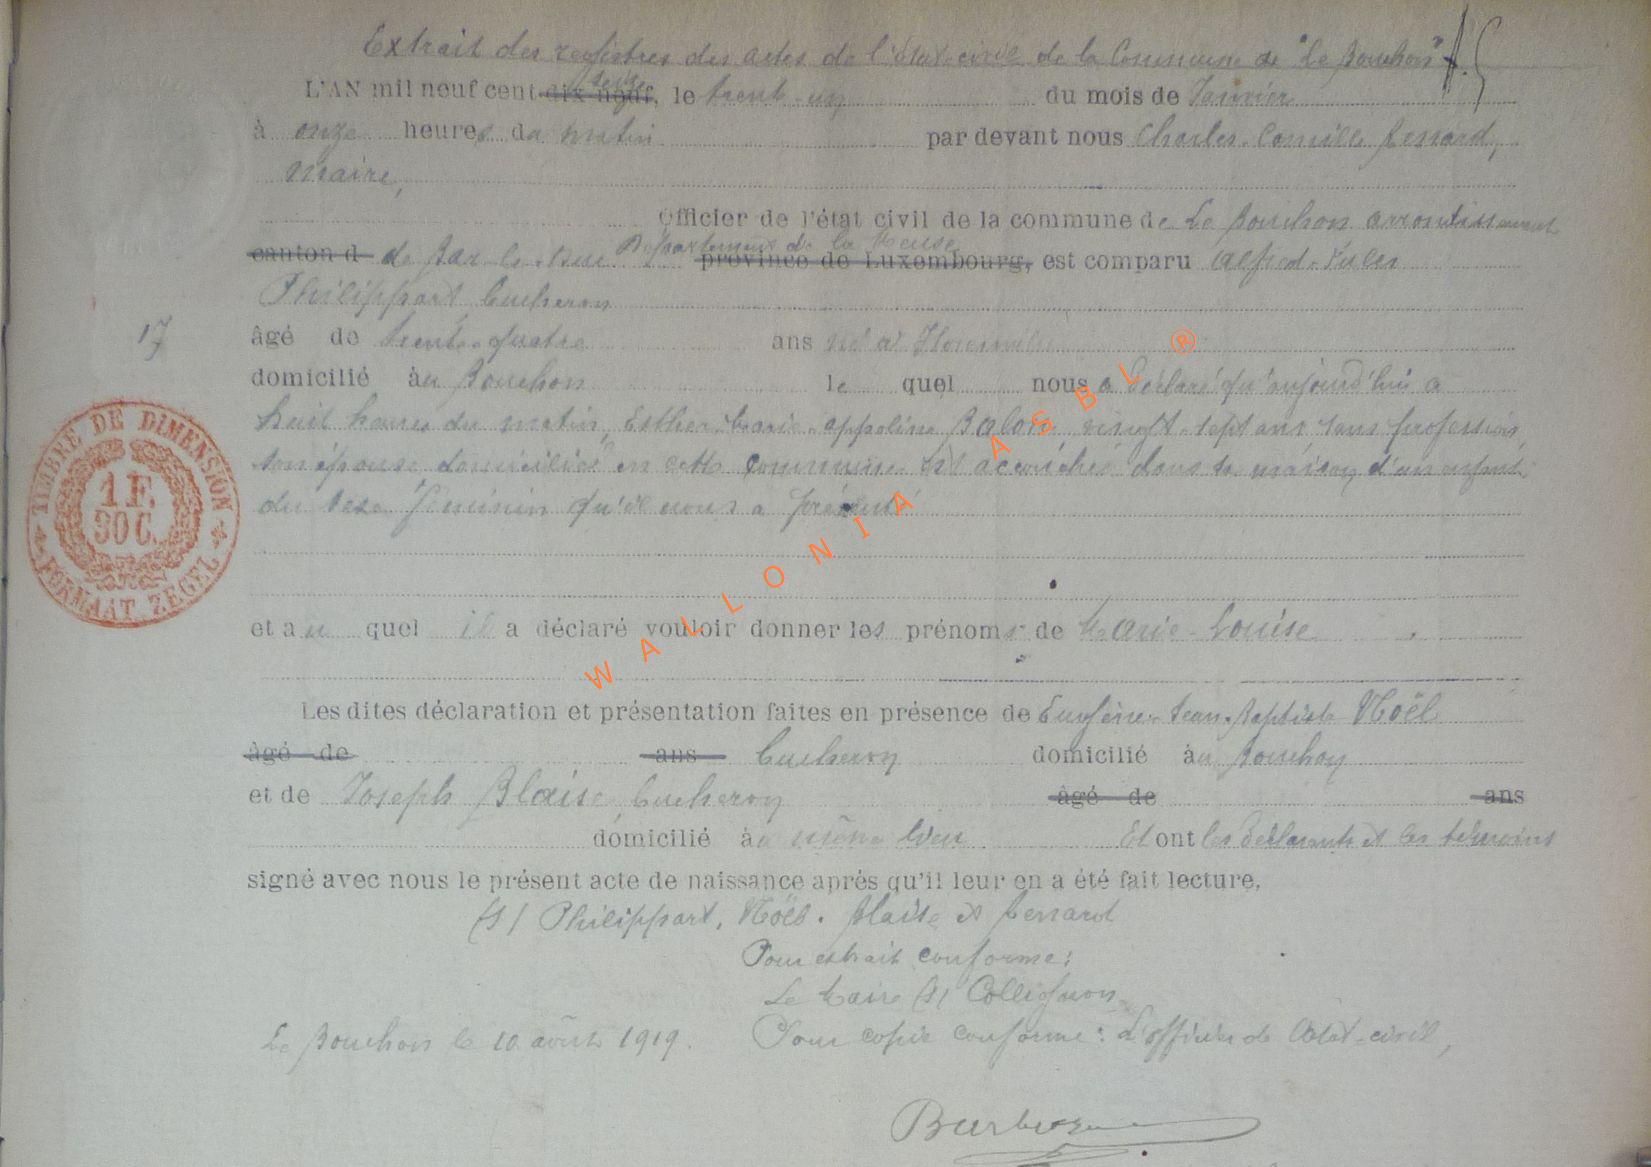 Extrait des registres des actes de l'état-civil de la Commune de "Le Bouchon"
L'AN mil neuf cent dix-neuf, seize le trente-un du mois de Janvier
à onze heures du matin par devant nous Charles-Camille Renard,
Maire,
Officier de l'état civil de la commune de Le Bouchon arrondissement
canton d de Bar-le-Duc Département de la Meuse province de Luxembourg, est comparu Alfred-Jules
Philippart, bucheron
17 âgé de trente-quatre ans né à
domicilié au Bouchon le quel nous a déclaré qu'aujourd'hui à
huit heures du matin, Esther-Marie-Appoline vingt-sept ans sans profession,
son épouse domiciliée en cette commune est accouchée dans sa maison d'un enfant
du sexe féminin qu'il nous a présenté
TIMBRE DE DIMENSION
1 F.
30 C.
FORMAAT ZEGEL
et au quel il a déclaré vouloir donner les prénoms de Marie-Louise.
Les dites déclaration et présentation faites en présence de Eugène-Jean-Baptiste Noël
âgé de ans bucheron domicilié au Bouchon
et de Joseph Blaise, bucheron âgé de ans
domicilié au même lieu Et ont les déclarants et les témoins
signé avec nous le présent acte de naissance après qu'il leur en a été fait lecture,
(s) Philippart, Noël. Blaise et Renard
Pour extrait conforme:
Le Maire (s) Collignon
Le Bouchon le 10 août 1919. Pour copie conforme: L'officier de l'état-civil,
WALLONIA ASBL ®